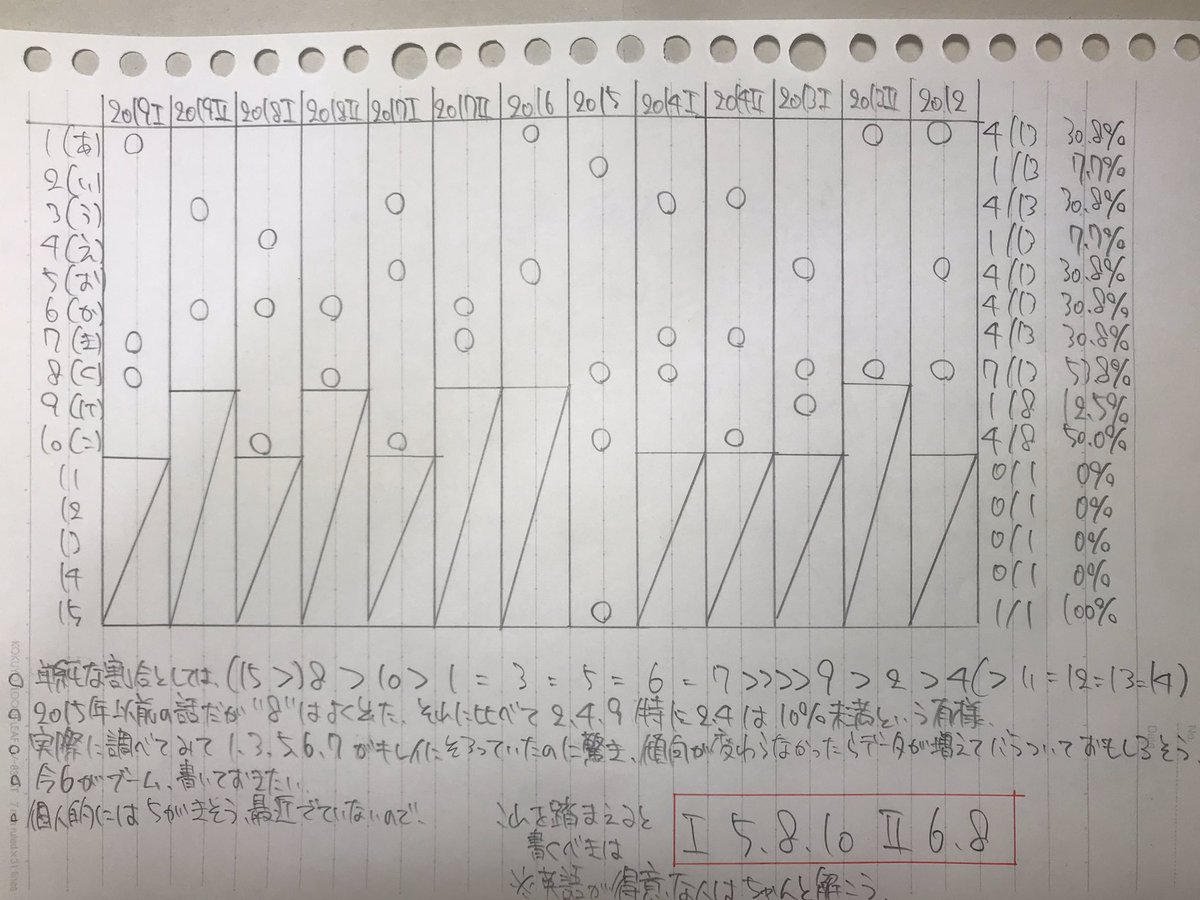 2019Ⅰ 2019Ⅱ 2018Ⅰ 2018Ⅱ 2017Ⅰ 2017Ⅱ 2016 2015 2014Ⅰ 2014Ⅱ 2013Ⅰ 2012 2012
1(あ) ○ ○ ○ ○ 4/13 30.8%
2(い) ○ 1/13 7.7%
3(う) ○ ○ ○ ○ 4/13 30.8%
4(え) ○ 1/13 7.7%
5(お) ○ ○ ○ ○ 4/13 30.8%
6(か) ○ ○ ○ ○ 4/13 30.8%
7(き) ○ ○ ○ ○ 4/13 30.8%
8(く) ○ ○ ○ ○ ○ ○ ○ 7/13 53.8%
9(け) ○ 1/8 12.5%
10(こ) ○ ○ ○ ○ 4/8 50.0%
11 0/1 0%
12 0/1 0%
13 0/1 0%
14 0/1 0%
15 ○ 1/1 100%
単純な割合としては、(15>)8>10>1=3=5=6=7>>>>9>2>4(>11=12=13=14)
2015年以前の話だが"8"はよく出た、それに比べて2.4.9特に2.4は10%未満という有様、
実際に調べてみて1.3.5.6.7がキレイにそろっていたのに驚き、傾向が変わらなかったらデータが増えてくるについておもしろそう
今6がブーム、書いておきたい、
個人的には5がきそう、最近でていないので、
以上を踏まえると
書くべきは
Ⅰ 5.8.10 Ⅱ 6.8
※英語が得意な人はちゃんと解こう